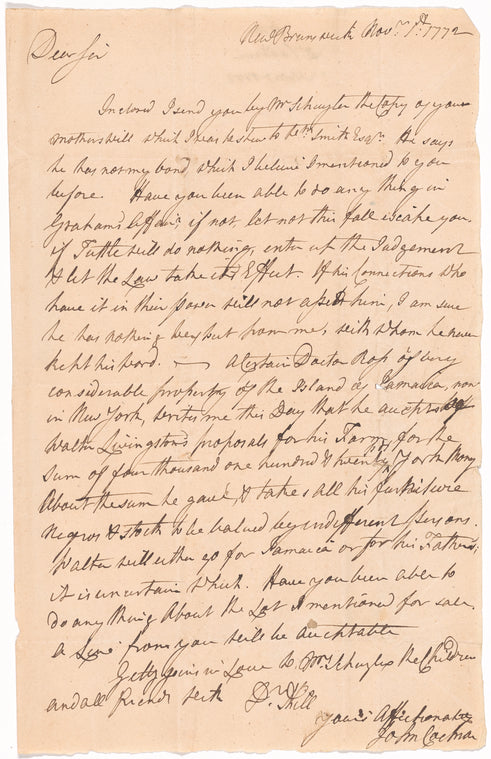 New Brunswick Novr. 1st. 1772
Dear Sir
Inclosed I send you by Mr Schuyler the Copy of your
mothers will which I was to shew to Smith Esqr. He says
he has not my bond, which I believe I mentioned to you
before. Have you been able to do any thing in
Grahams Affair, if not, let not this fall escape you.
if Tuttle will do nothing, enter up the Judgement
& let the Law take its Effect. If his Connections who
have it in their power will not assist him, I am sure
he has nothing to expect from me, with whom he never
kept his word. — A Certain Doctor Ross of very
considerable property of the Island of Jamaica, now
in New York, writes me this Day that he accepts of
Walter Livingston's proposals for his Farm, for the
sum of four thousand one hundred & twenty York Mony
About the sum he gave, & takes all his furniture
Negros & Stock to be valued by indifferent persons.
Walter will either go for Jamaica or for his Fathers;
it is uncertain which. Have you been able to
do any thing About the Lot I mentioned for sale.
a Line from you will be Acceptable
Gitty Joins in Love to Mrs Schuyler the Children
and all friends with Dr. Sir
Yours Affectionately
John Cochran